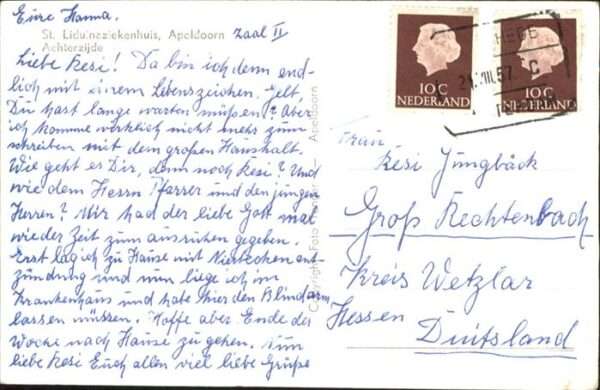 Eure Hanna.
St. Liduinaziekenhuis, Apeldoorn Zaal II
Achterzijde
Liebe Resi! Da bin ich denn end-
lich mit einem Lebenszeichen. Gelt,
Du hast lange warten müßen? Aber
ich komme wirklich nicht mehr zum
schreiben mit dem großen Haushalt.
Wie geht es Dir, denn noch Resi? Und
wie dem Herrn Pfarrer und den jungen
Herren? Mir had der liebe Gott mal
wieder Zeit zum ausruhen gegeben.
Erst lag ich zu Hause mit Nierbecken ent-
zündung und nun liege ich im
Krankenhaus und habe hier den Blindarm
lassen müssen. Hoffe aber Ende der
Woche nach Hause zu gehen. Nun
liebe Resi Euch allen viel liebe Grüße
Copyright Foto Apeldoorn
10 C
NEDERLAND
10 C
NEDERLAND
57
C
Frau
Resi Jungbäck
Groß Rechtenbach
Kreis Wetzlar
Hessen
Duitsland